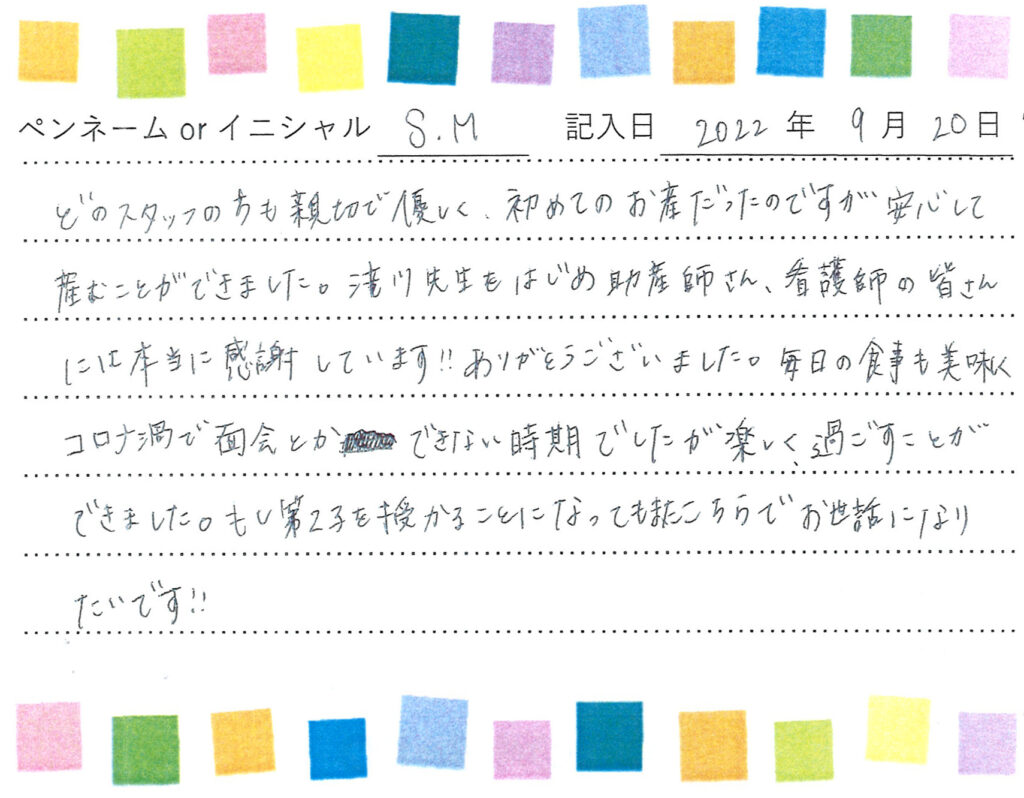 ペンネーム or イニシャル S.M 記入日 2022 年 9 月 20 日
どのスタッフの方も親切で優しく、初めてのお産だったのですが安心して
産むことができました。滝川先生をはじめ助産師さん、看護師の皆さん
には本当に感謝しています!!ありがとうございました。毎日の食事も美味しく
コロナ渦で面会とか できない時期でしたが楽しく過ごすことが
できました。もし第2子を授かることになってもまたこちらでお世話になり
たいです!!